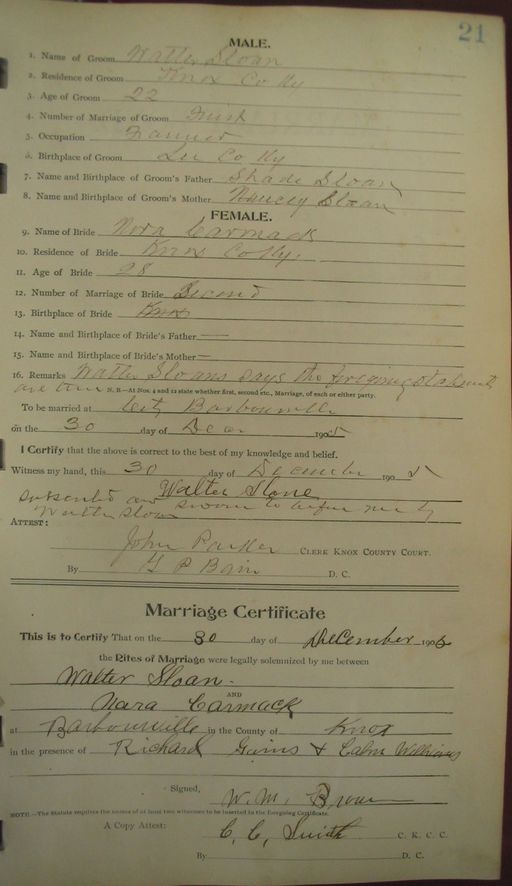 21
MALE.
1. Name of Groom Walter Sloan
2. Residence of Groom Knox Co Ky
3. Age of Groom 22
4. Number of Marriage of Groom First
5. Occupation Farmer
6. Birthplace of Groom Lee Co Ky
7. Name and Birthplace of Groom's Father Shade Sloan
8. Name and Birthplace of Groom's Mother Nancey Sloan
FEMALE.
9. Name of Bride Nora Carmack
10. Residence of Bride Knox Co Ky.
11. Age of Bride 28
12. Number of Marriage of Bride Second
13. Birthplace of Bride Knox
14. Name and Birthplace of Bride's Father —
15. Name and Birthplace of Bride's Mother —
16. Remarks Walter Sloans says the foregoing statements
are true N. B.—At Nos. 4 and 12 state whether first, second etc., Marriage, of each or either party.
To be married at City Barbourville
on the 30 day of 1905
I Certify that the above is correct to the best of my knowledge and belief.
Witness my hand, this 30 day of December 1905
Walter Slone
and sworn to before me by
Walter Sloan
ATTEST:
John Parker CLERK KNOX COUNTY COURT.
By G P Bain D. C.
Marriage Certificate
This is to Certify That on the 30 day of December 190
the Rites of Marriage were legally solemnized by me between
Walter Sloan.
AND
Nara Carmack
at Barbourville in the County of Knox
in the presence of Richard & Williams
Signed,
W. M. Brown
NOTE.—The Statute requires the names of at least two witnesses to be inserted in the foregoing Certificate.
A Copy Attest: C. C. Smith C. K. C. C.
By D. C.